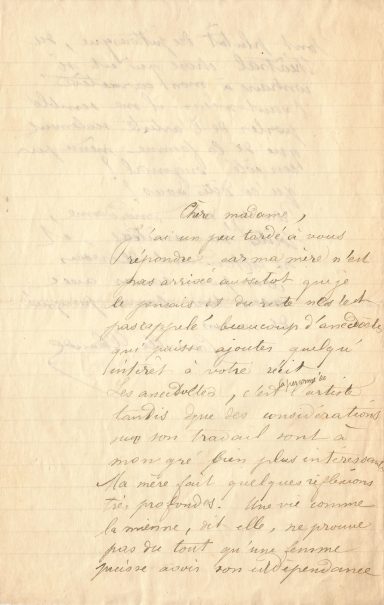 Chère madame,
j'ai un peu tardé à vous
répondre, car ma mère n'est
pas arrivée aussitôt que je
le pensais et du reste n's'est
pas rappelé beaucoup d'anecdotes
qui puisse ajouter quelqu'
intérêt à votre récit.
Les anecdotes, c'est l'artiste
tandis que des considérations
sur son travail sont à
mon gré bien plus intéressant
Ma mère fait quelques réflexions
très profondes. Une vie comme
la mienne, dit elle, ne prouve
pas du tout qu'une femme
puisse avoir son indépendance